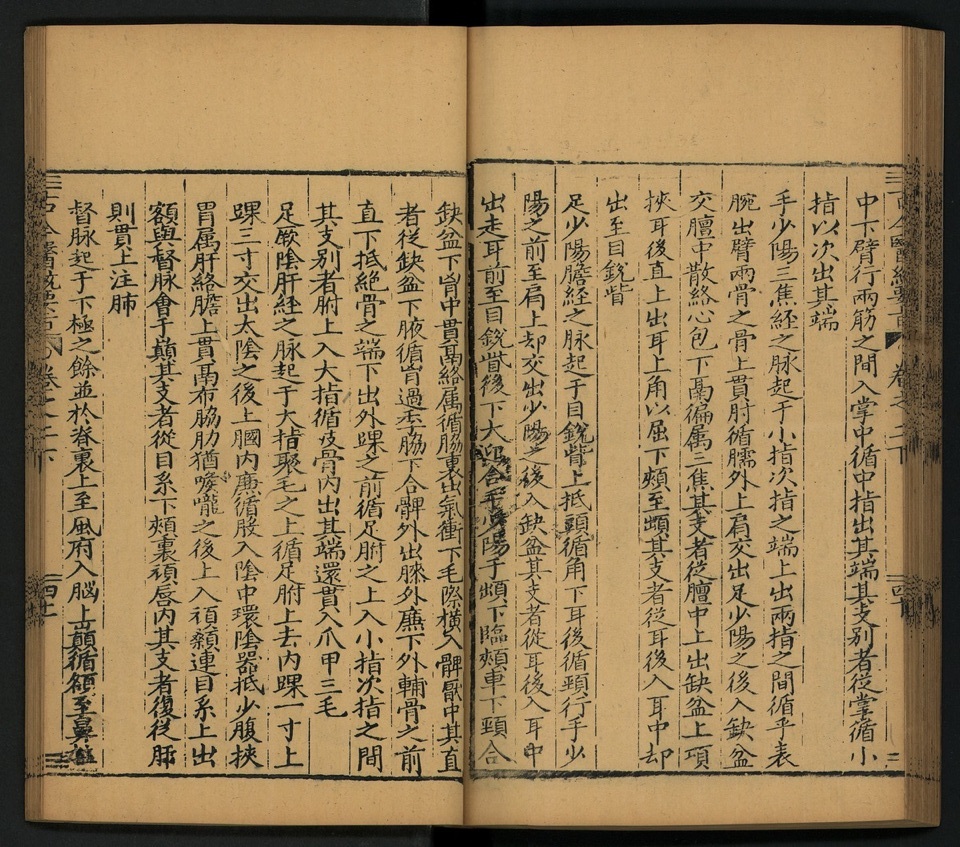 中下臂行兩筋之間入掌中循中指出其端其支别者從掌循小
指以次出其端
手少陽三焦経之脉起于小指次指之端上出兩指之間循手表
腕出臂兩骨之骨上貫肘循臑外上肩交出足少陽之後入缺盆
交膻中散絡心包下鬲徧属三焦其支者從膻中上出缺盆上項
挾耳後直上出耳上角以屈下頰至䪼其支者從耳後入耳中却
出至目銳眥
足少陽膽経之脉起于目銳眥上抵頭循角下耳後循頸行手少
陽之前至肩上却交出少陽之後入缺盆其支者從耳後入耳中
出走耳前至目銳眥後下大迎合手少陽于䪼下臨頰車下頸合
缺盆下胷中貫鬲絡属循脇裏出氣衝下毛際橫入髀厭中其直
者從缺盆下腋循胷過季脇下合髀外出膝外廉下外輔骨之前
直下抵絶骨之端下出外踝之前循足胕之上入小指次指之間
其支别者胕上入大指循歧骨内出其端還貫入爪甲三毛
足厥陰肝経之脉起于大指聚毛之上循足胕上去内踝一寸上
踝三寸交出太陰之後上膕内廉循股入陰中環陰器抵少腹挾
胃属肝絡膽上貫鬲布脇肋循喉嚨之後上入頏顙連目系上出
額與督脉會于巔其支者從目系下頰裏環唇内其支者復從肝
則貫上注肺
督脉起于下極之餘並於脊裏上至風府入脳上巔循額至鼻